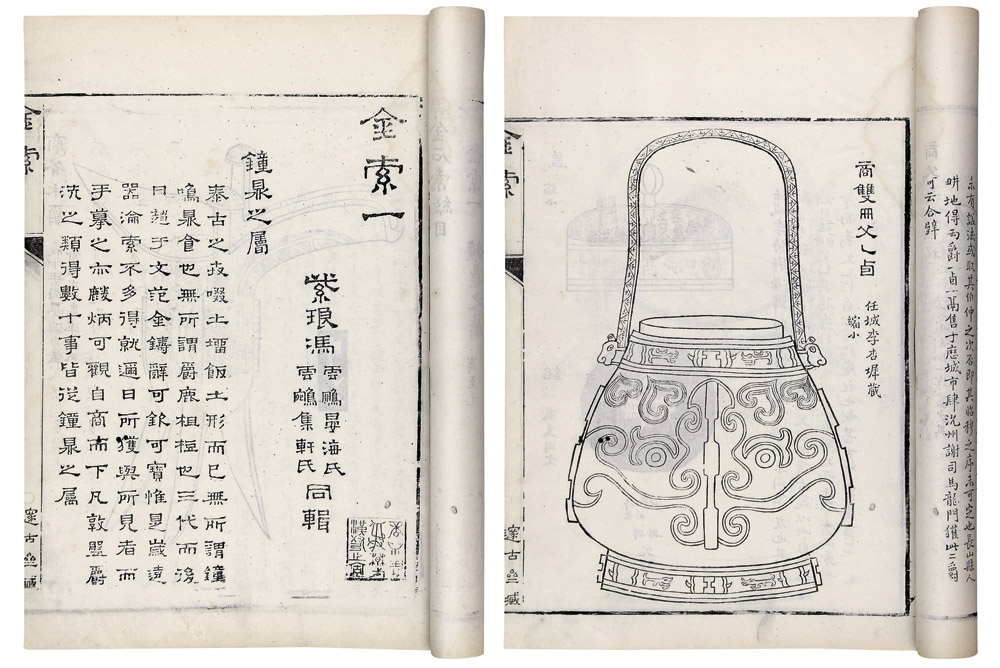 金索一
紫琅馮雲鵬晏海氏
雲鵷集軒氏同輯
鐘鼎之屬
泰古之世啜土塯飯土形而已無所謂鐘
鳴鼎食也無所謂爵鹿柤梪也三代而後
日趨于文范金鑄辭可銘可寶惟是歲遠
器淪索不多得就邇日所獲與所見者而
手摹之亦麟炳可觀自商而下凡敦盤爵
洗之類得數十事皆從鐘鼎之屬
金索
邃古齋藏
未有諡法或取其伯仲之次否即其昭穆之序未可定也長山縣人
畊地得兩爵一卣一鬲售于歷城市肆沇州謝司馬龍門獲此二爵
可云合璧
商雙冊父乙卣
任城李杏墀藏
縮小
金索
邃古齋藏